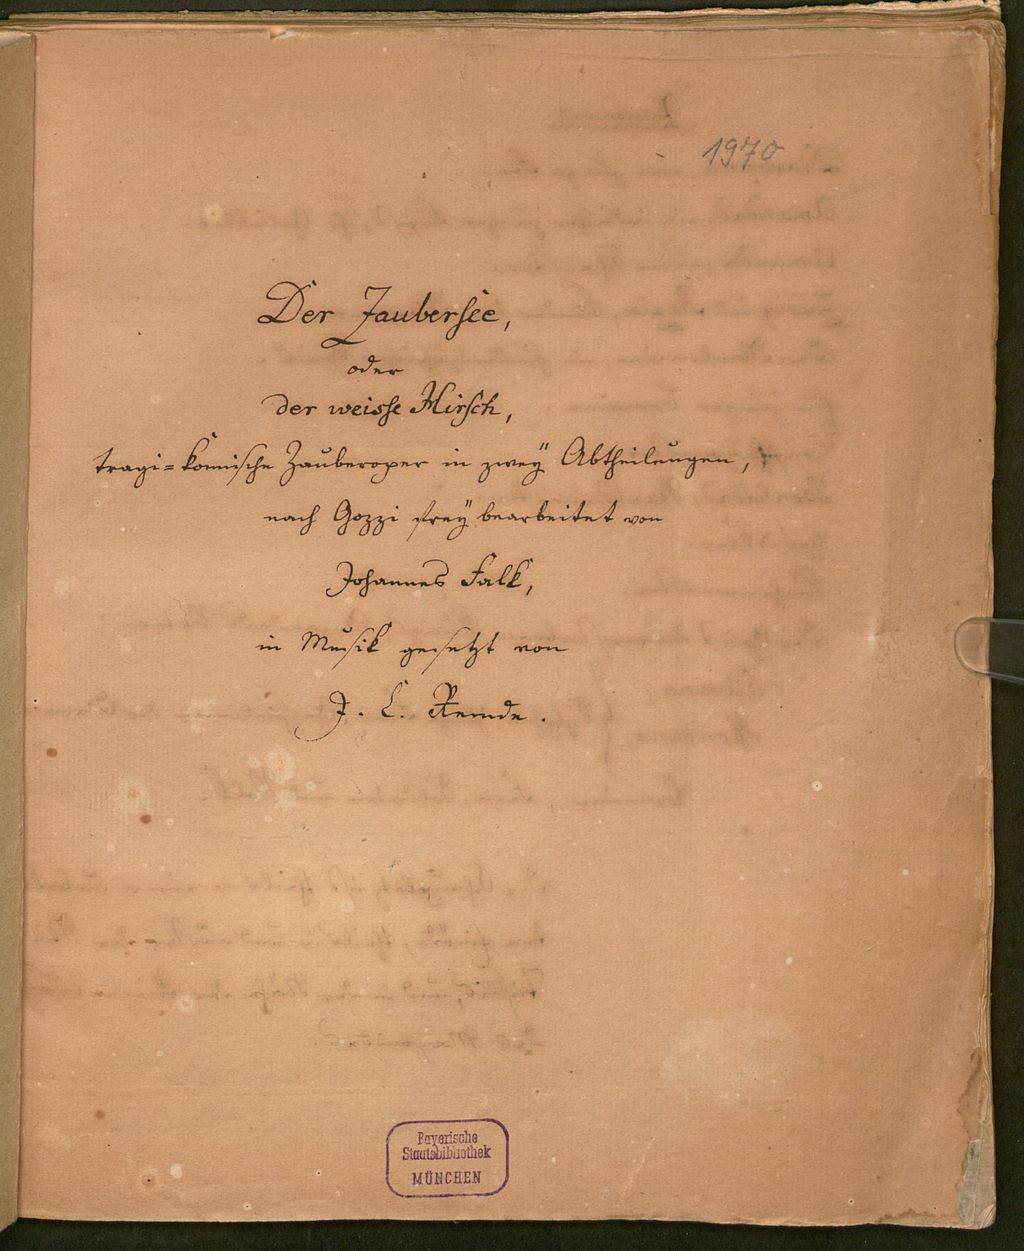 1970
Der Zaubersee,
oder
der weisse Hirsch,
tragi=komische Zauberoper in zweÿ Abtheilungen,
nach Gozzi freÿ bearbeitet von
Johannes Falk,
in Musik gesetzt von
J. C. Remde.
Bayerische
Staatsbibliothek
MÜNCHEN